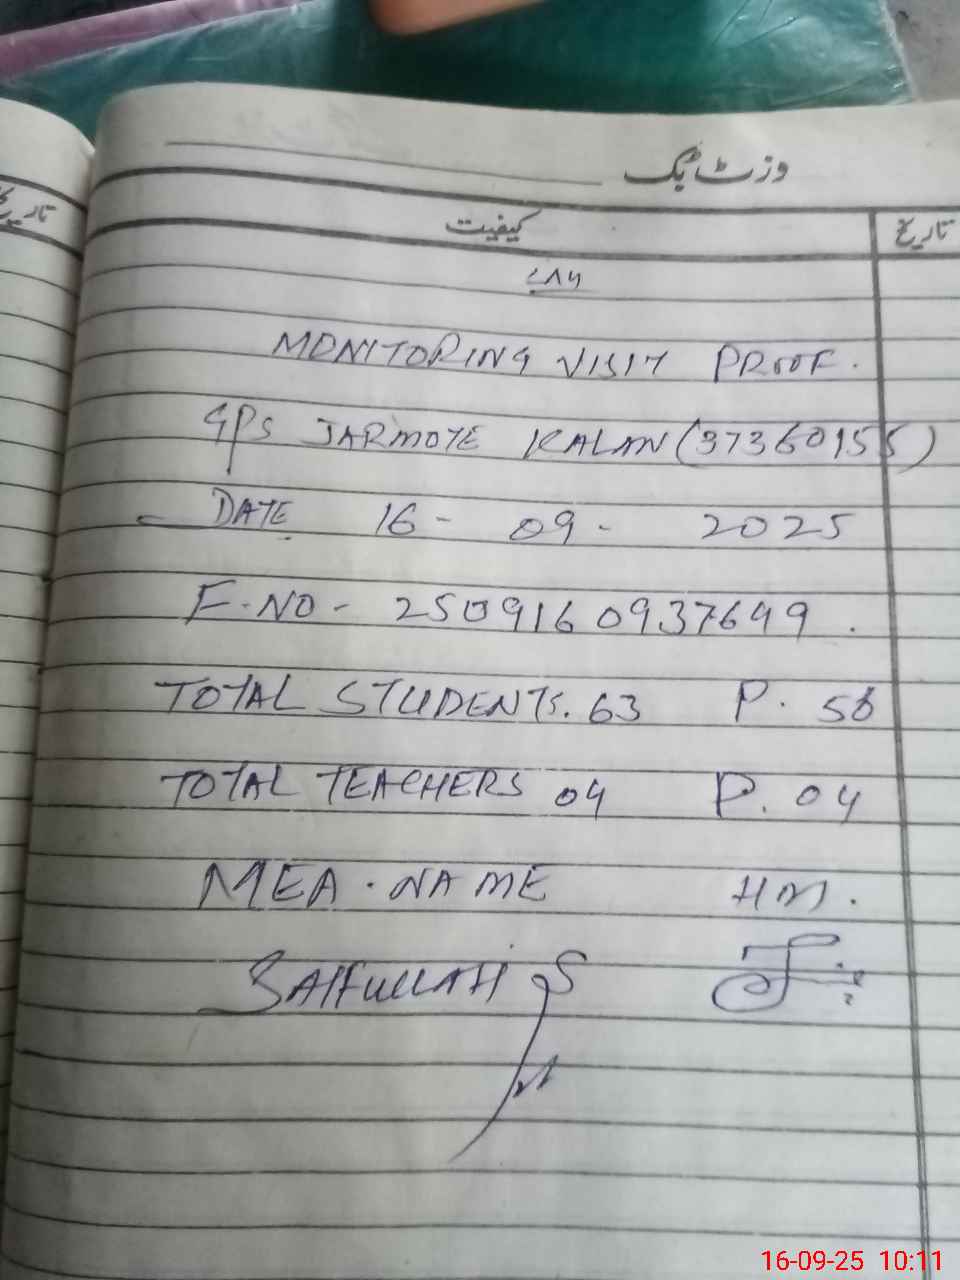 وزٹ بک
کیفیت
تاریخ
تاریخ
۷۸۶
MONITORING VISIT PROOF.
GPS JARMOTE KALAN (37360155)
DATE 16 - 09 - 2025
F-NO - 2509160937649.
TOTAL STUDENTS. 63 P. 58
TOTAL TEACHERS 04 P. 04
MEA. NAME HM.
SAIFULLAH
16-09-25 10:11